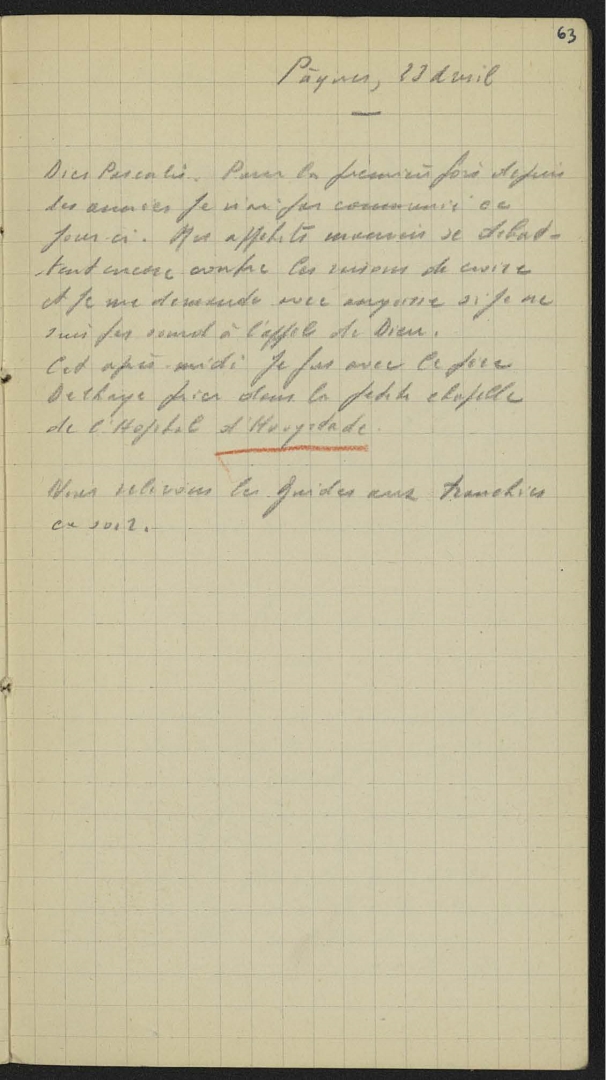 63
Pâques, 23 avril
Dies Paschalis. Pour la première fois depuis
des années je n'ai pas communié ce
jour-ci. Mes appétits mauvais se débat-
tent encore contre les raisons de croire
et je me demande avec angoisse si je ne
suis pas sourd à l'appel de Dieu.
Cet après-midi je fus avec le père
Delhaye prier dans la petite chapelle
de l'Hôpital d'Hoogstade.
Nous relevons les Guides aux tranchées
ce soir.